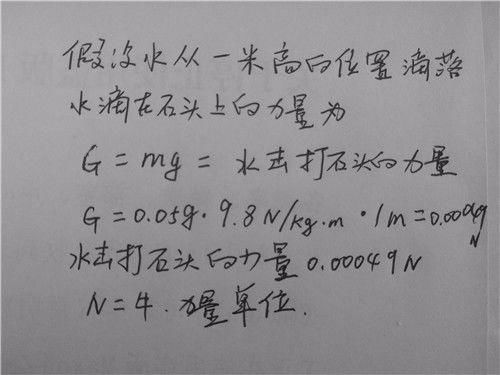 假设水从一米高的位置滴落
水滴在石头上的力量为
G=mg=水击打石头的力量
G=0.05g·9.8N/kg·m·1m=0.00049N
水击打石头的力量0.00049N
N=牛.力量单位.